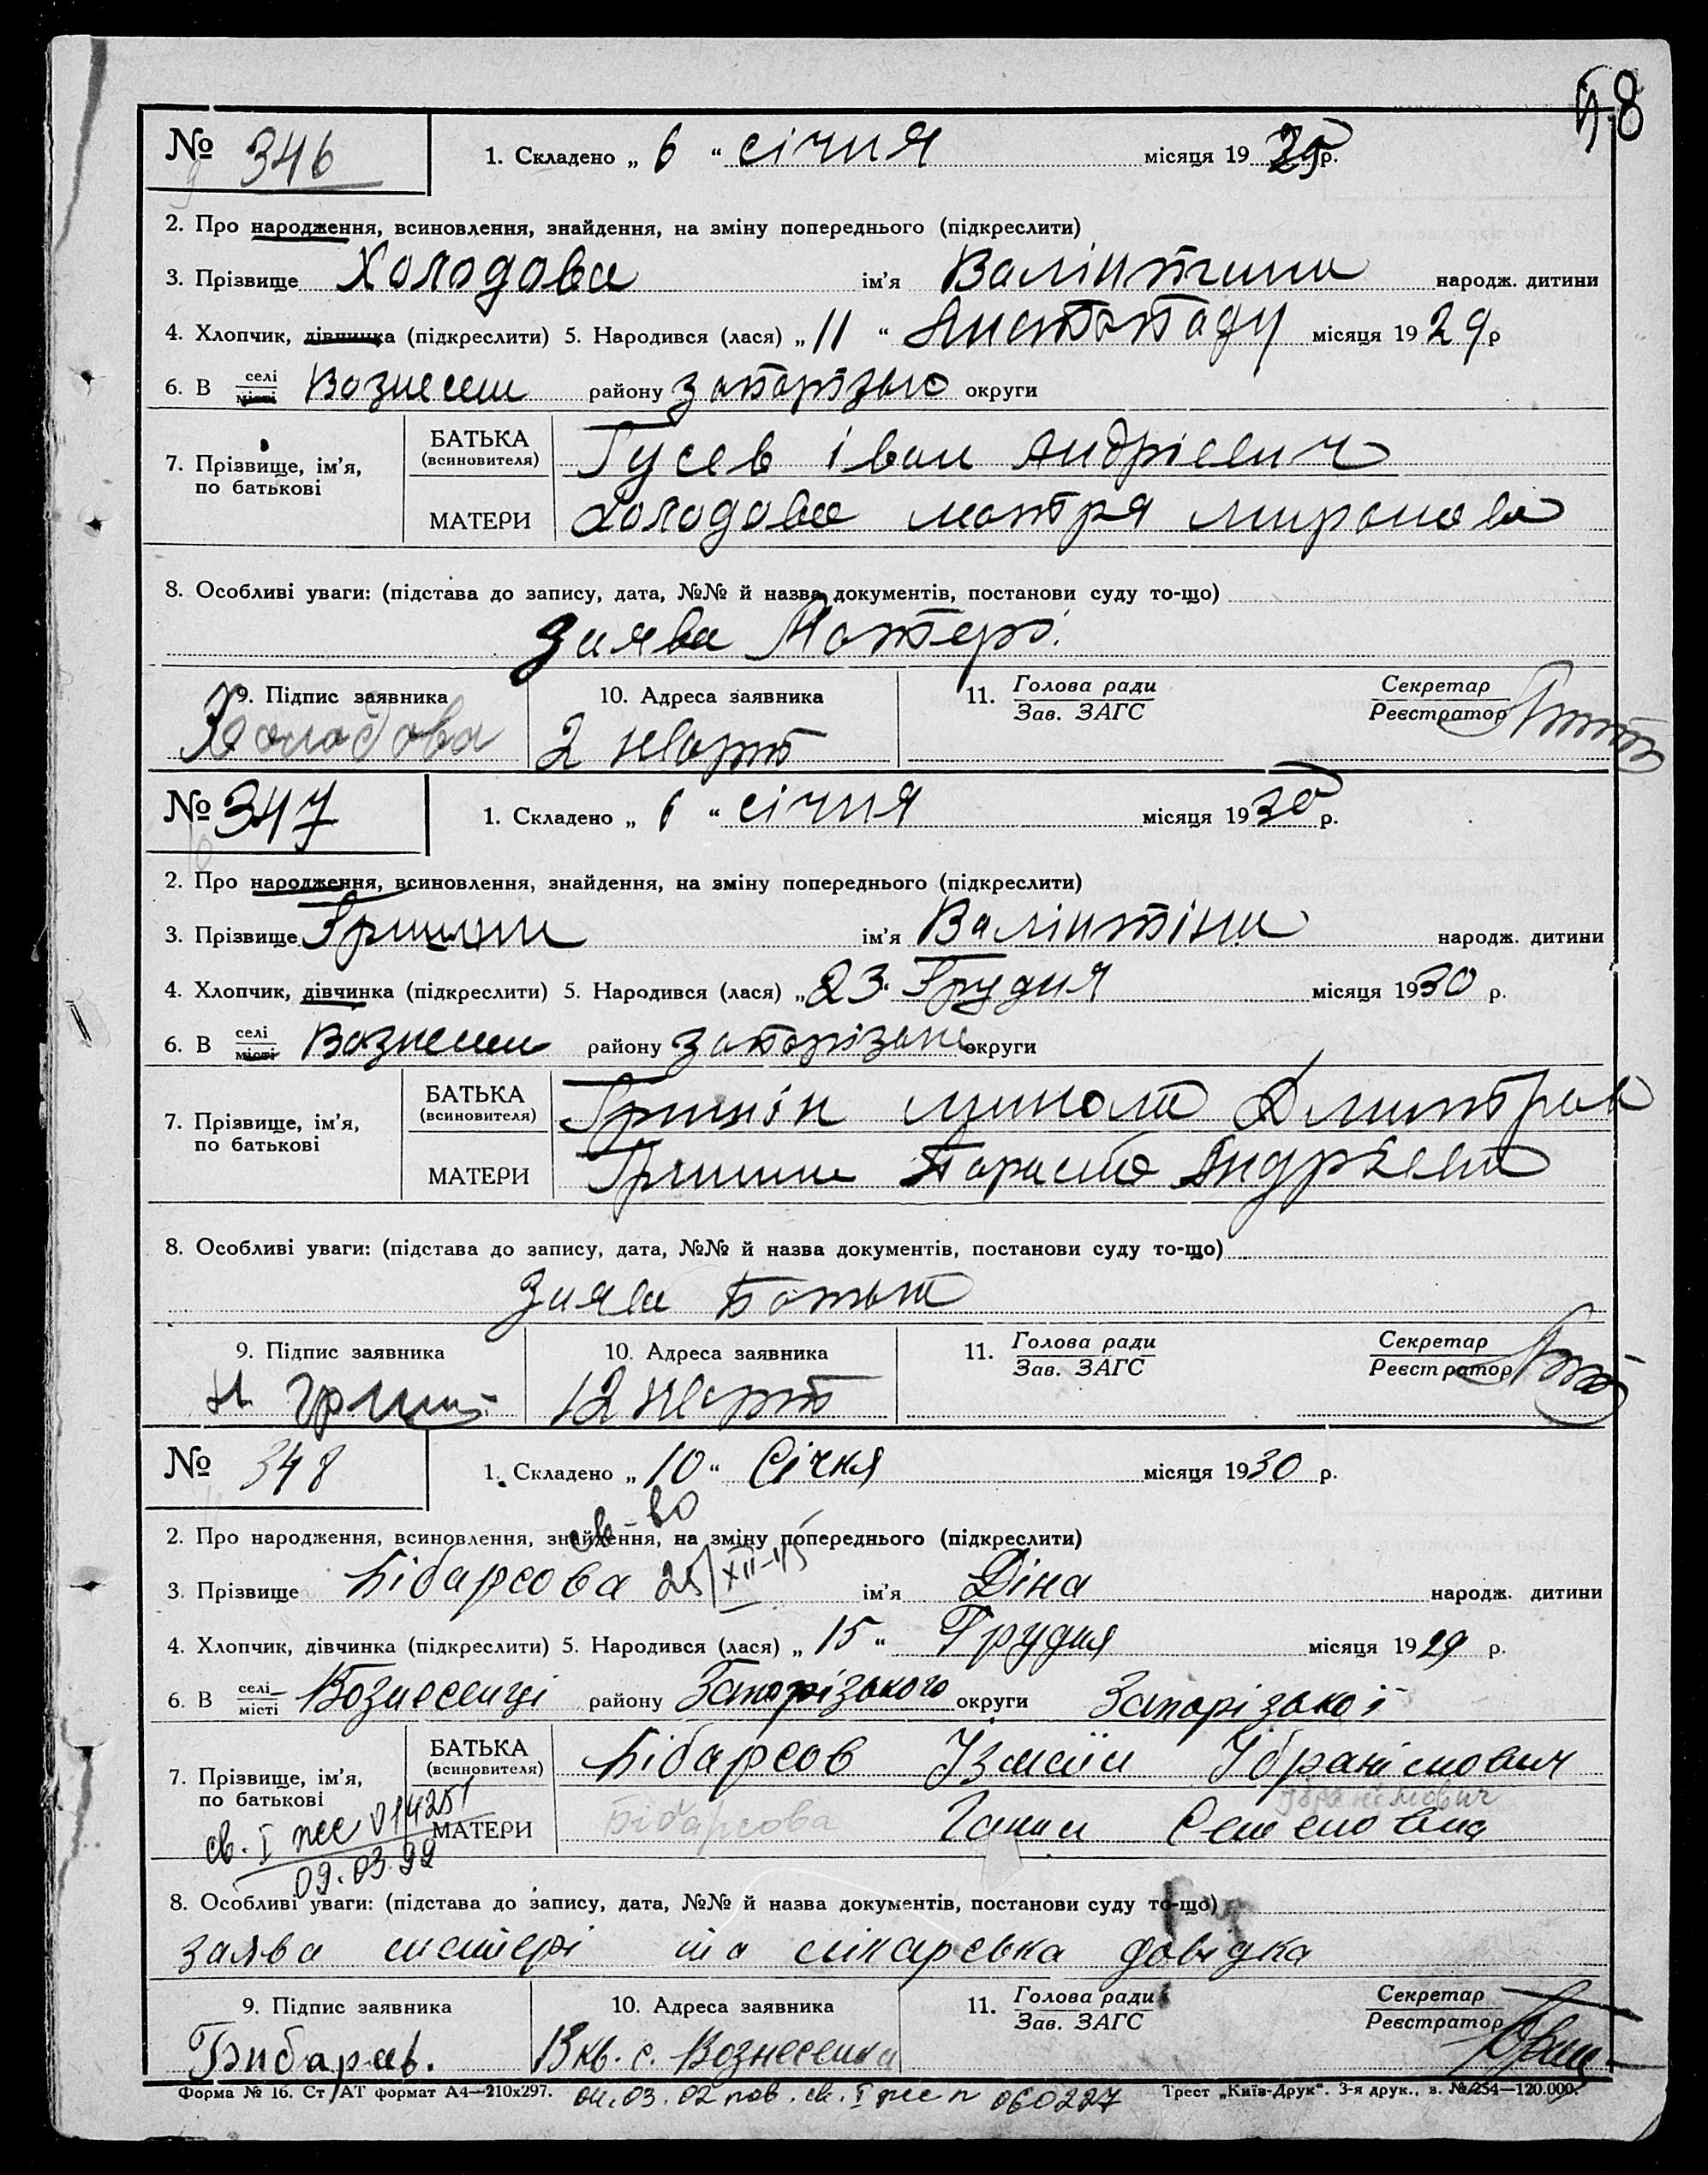 58
№ 346 1. Складено „ 6 “ січня місяця 19 р.
2. Про народження, всиновлення, знайдення, на зміну попереднього (підкреслити)
3. Прізвище Холодова ім'я Валінтина народж. дитини
4. Хлопчик, дівчинка (підкреслити) 5. Народився (лася) „ 11 “ Листопаду місяця 1929 р
6. В селі місті Вознесен району округи
7. Прізвище, ім'я, по батькові
БАТЬКА (всиновителя) Гусев іван Андрієвич
МАТЕРИ Холодова мотря миронова
8. Особливі уваги: (підстава до запису, дата, №№ й назва документів, постанови суду то-що)
Заява Матері
9. Підпис заявника 10. Адреса заявника 11. Голова ради Зав. ЗАГС Секретар Реєстратор
Холодова 2 кварт
№ 347 1. Складено „ 6 “ січня місяця 1930 р.
2. Про народження, всиновлення, знайдення, на зміну попереднього (підкреслити)
3. Прізвище ім'я Валінтіна народж. дитини
4. Хлопчик, дівчинка (підкреслити) 5. Народився (лася) „ 23 Грудня місяця 1930 р.
6. В селі місті Вознесен району округи
7. Прізвище, ім'я, по батькові
БАТЬКА (всиновителя) Гришін микола Дмитров
МАТЕРИ
8. Особливі уваги: (підстава до запису, дата, №№ й назва документів, постанови суду то-що)
Заява Батька
9. Підпис заявника 10. Адреса заявника 11. Голова ради Зав. ЗАГС Секретар Реєстратор
12 кварт
№ 348 1. Складено „ 10 “ Січня місяця 1930 р.
2. Про народження, всиновлення, знайдення, на зміну попереднього (підкреслити)
св-во
3. Прізвище Бібарсова 25/XII-45 ім'я Діна народж. дитини
4. Хлопчик, дівчинка (підкреслити) 5. Народився (лася) „ 15 “ Грудня місяця 1929 р.
6. В селі місті Вознесенці району Запорізького округи Запорізької
7. Прізвище, ім'я, по батькові
БАТЬКА (всиновителя) Бібарсов Ізмаїл Ібрагімович
Ібрагімович
МАТЕРИ Бібарсова Семеновна
св. I жс 014251
09.03.99
8. Особливі уваги: (підстава до запису, дата, №№ й назва документів, постанови суду то-що)
заява матері та лікарська довідка
9. Підпис заявника 10. Адреса заявника 11. Голова ради Зав. ЗАГС Секретар Реєстратор
Бибарсв. Вкв. с. Вознесенка
Форма № 16. Ст АТ формат А4—210х297. 03.02 пов. св. I жс n 060227 Трест „Київ-Друк“. 3-я друк., з. № 254—120.000.